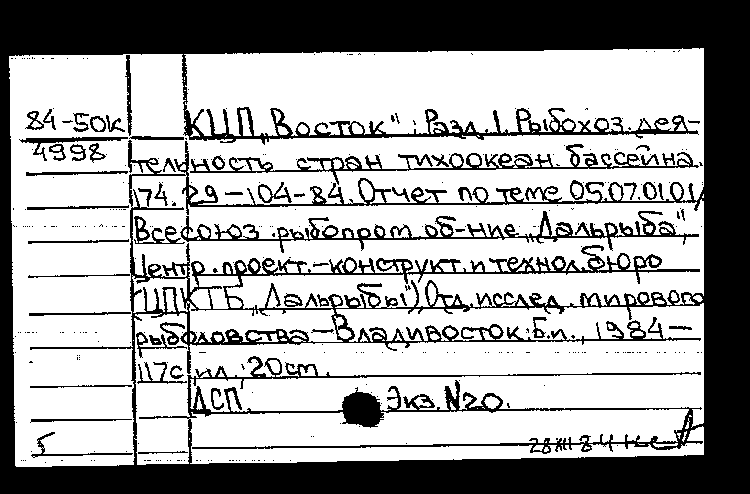 84-50к КЦП „Восток" : Разд. 1. Рыбохоз. дея-
4998 тельность стран тихоокеан. бассейна.
174. 29-104-84. Отчет по теме 05.07.01.01/
Всесоюз. рыбопром. об-ние „Дальрыба",
Центр. проект.-конструкт. и технол. бюро
(ЦПКТБ „Дальрыбы") Отд. исслед. мирового
рыболовства – Владивосток: Б.и., 1984 –
117с ил. 20см.
ДСП. Экз. №20.
5 28 XII 84